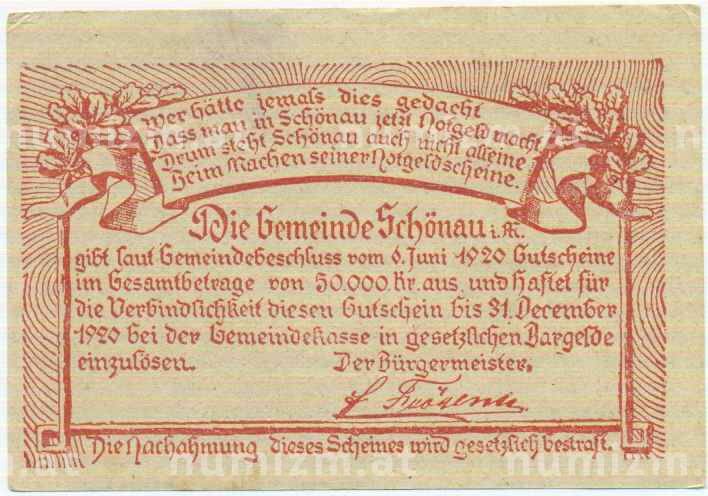 Wer hätte jemals dies gedacht
Dass man in Schönau jetzt Notgeld macht
Drum steht Schönau auch nicht alleine
Beim Machen seiner Notgeldscheine.
Die Gemeinde Schönau i. M.
gibt laut Gemeindebeschluss vom 6. Juni 1920 Gutscheine
im Gesamtbetrage von 50.000 Kr. aus, und haftet für
die Verbindlichkeit diesen Gutschein bis 31. December
1920 bei der Gemeindekasse in gesetzlichen Bargelde
einzulösen. Der Bürgermeister.
Die Nachahmung dieses Scheines wird gesetzlich bestraft.
numizm.at